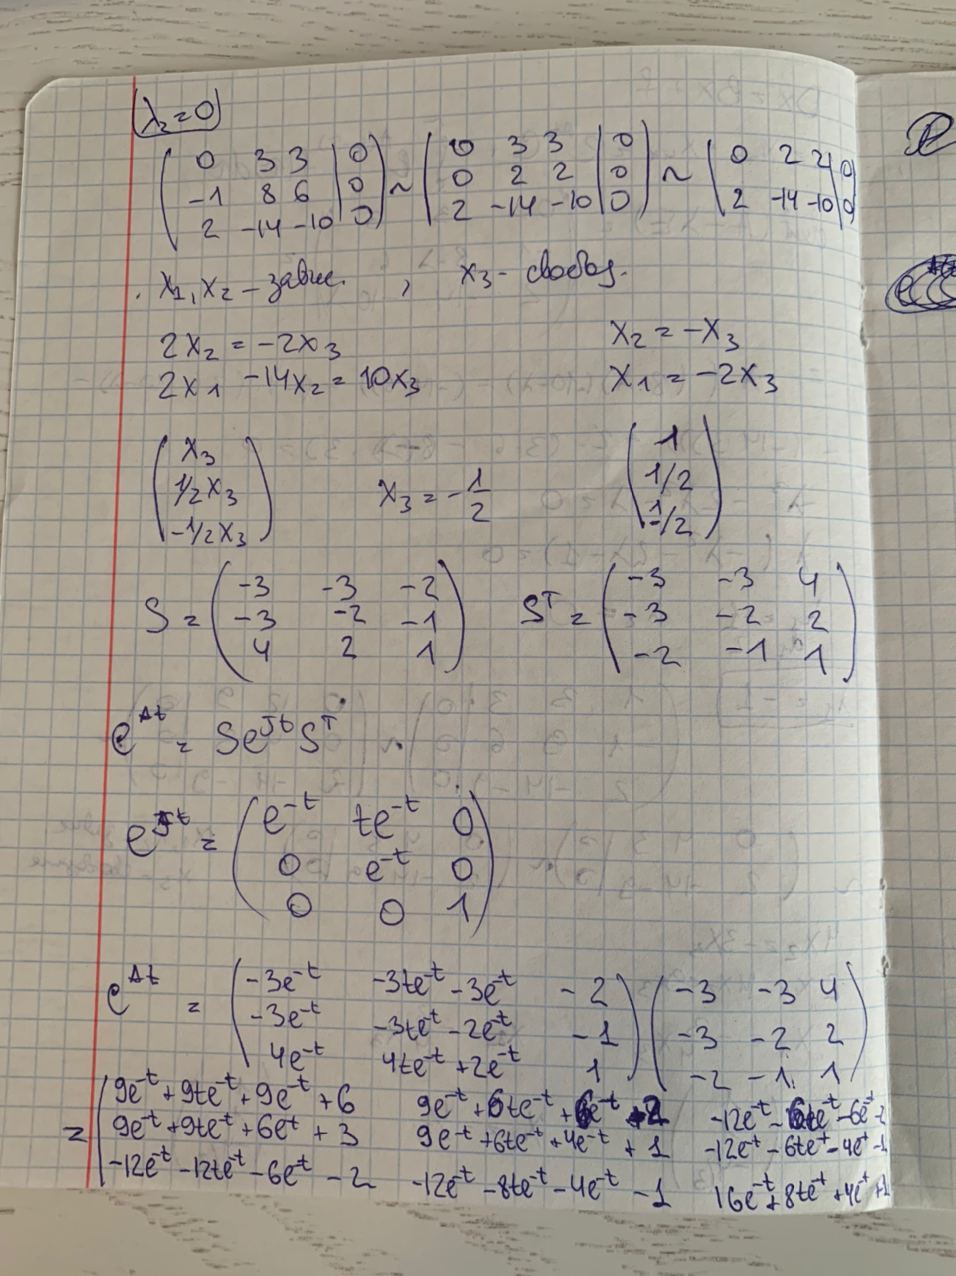 λ₂=0
(0 3 3 | 0; -1 8 6 | 0; 2 -14 -10 | 0) ~ (0 3 3 | 0; 0 2 2 | 0; 2 -14 -10 | 0) ~ (0 2 2 | 0; 2 -14 -10 | 0)
x₁, x₂ - завис. , x₃ - свобод.
2x₂ = -2x₃ x₂ = -x₃
2x₁ -14x₂ = 10x₃ x₁ = -2x₃
(x₃; 1/2x₃; -1/2x₃) x₃ = -1/2 (1; 1/2; -1/2)
S = (-3 -3 -2; -3 -2 -1; 4 2 1) Sᵀ = (-3 -3 4; -3 -2 2; -2 -1 1)
e^{At} = Se^{Jt}Sᵀ
e^{Jt} = (e^{-t} te^{-t} 0; 0 e^{-t} 0; 0 0 1)
e^{At} = (-3e^{-t} -3te^{-t}-3e^{-t} -2; -3e^{-t} -3te^{-t}-2e^{-t} -1; 4e^{-t} 4te^{-t}+2e^{-t} 1)(-3 -3 4; -3 -2 2; -2 -1 1)
= 9e^{-t}+9te^{-t}+9e^{-t}+6 9e^{-t}+6te^{-t}+6e^{-t}+2 -12e^{-t}-6te^{-t}-6e^{-t}-2
9e^{-t}+9te^{-t}+6e^{-t}+3 9e^{-t}+6te^{-t}+4e^{-t}+1 -12e^{-t}-6te^{-t}-4e^{-t}-1
-12e^{-t}-12te^{-t}-6e^{-t}-2 -12e^{-t}-8te^{-t}-4e^{-t}-1 16e^{-t}+8te^{-t}+4e^{-t}+1